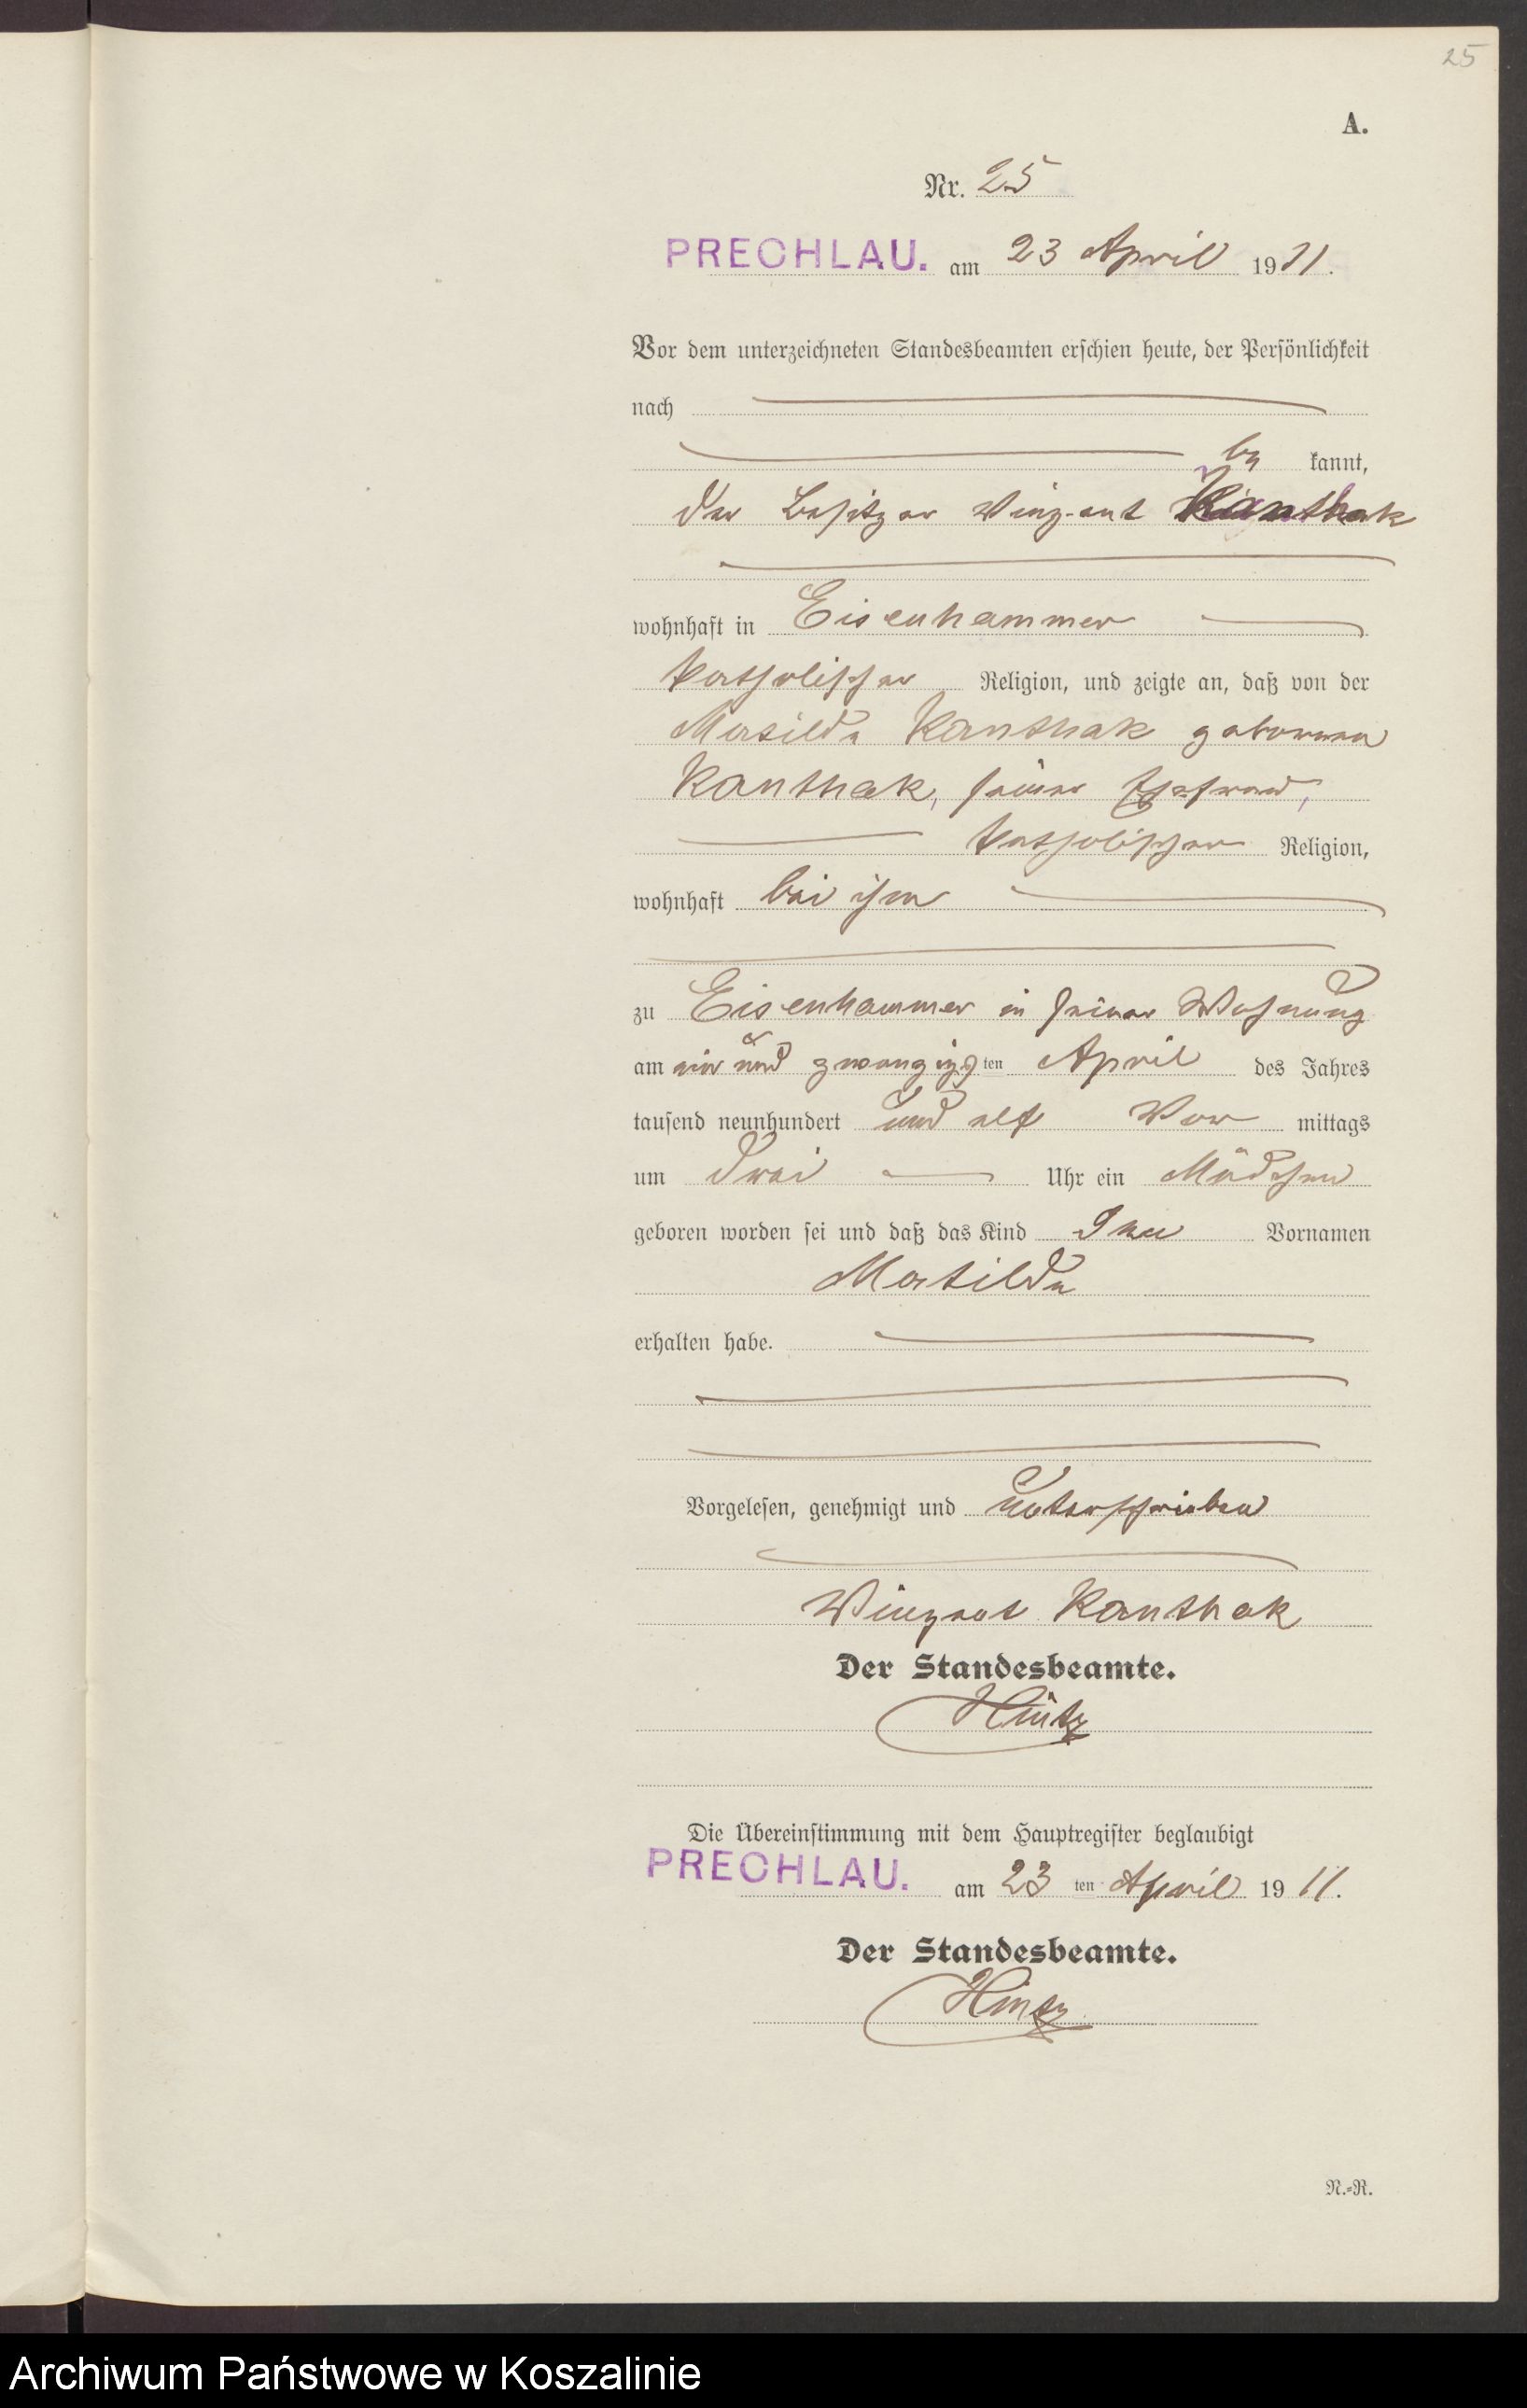 25
A.
Nr. 25
PRECHLAU. am 23 April 1911.
Vor dem unterzeichneten Standesbeamten erschien heute, der Persönlichkeit
nach
be kannt,
der Besitzer Vinzent Kanthak
wohnhaft in Eisenhammer
katholischer Religion, und zeigte an, daß von der
Matilde Kanthak geborenen
Kanthak, seiner Ehefrau,
katholischer Religion,
wohnhaft bei ihm
zu Eisenhammer in seiner Wohnung
am ein und zwanzigsten April des Jahres
tausend neunhundert und elf Vor mittags
um drei Uhr ein Mädchen
geboren worden sei und daß das Kind den Vornamen
Matilde
erhalten habe.
Vorgelesen, genehmigt und unterschrieben
Vinzent Kanthak
Der Standesbeamte.
Hintz
Die Übereinstimmung mit dem Hauptregister beglaubigt
PRECHLAU. am 23 ten April 1911.
Der Standesbeamte.
Hintz
N.=R.
Archiwum Państwowe w Koszalinie